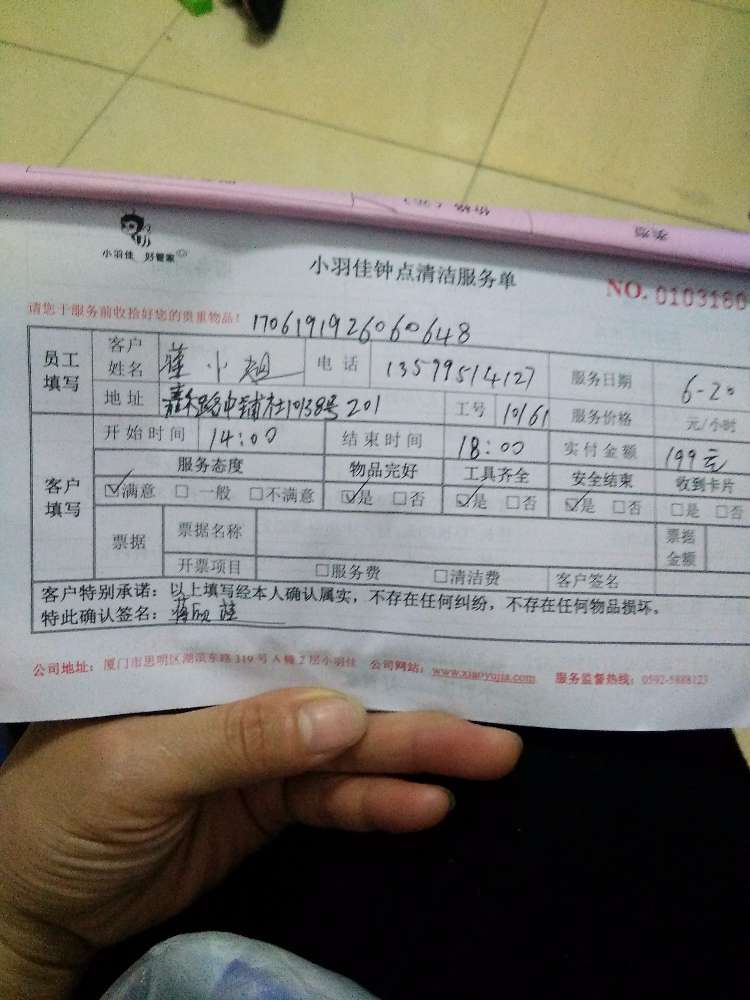 小羽佳 好管家
小羽佳钟点清洁服务单
NO. 0103160
请您于服务前收拾好您的贵重物品！
1706191926060648
员工填写 客户姓名 蒋小姐 电话 13599514127 服务日期 6-20
地址 嘉禾路中铺社1038号201 工号 10161 服务价格 元/小时
客户填写 开始时间 14:00 结束时间 18:00 实付金额 199元
服务态度 物品完好 工具齐全 安全结束 收到卡片
☑满意 □一般 □不满意 ☑是 □否 ☑是 □否 ☑是 □否 □是 □否
票据 票据名称 票据金额
开票项目 □服务费 □清洁费 客户签名
客户特别承诺：以上填写经本人确认属实，不存在任何纠纷，不存在任何物品损坏。
特此确认签名：蒋
公司地址：厦门市思明区湖滨东路319号A幢2层小羽佳 公司网站：www.xiaoyujia.com 服务监督热线：0592-5888123